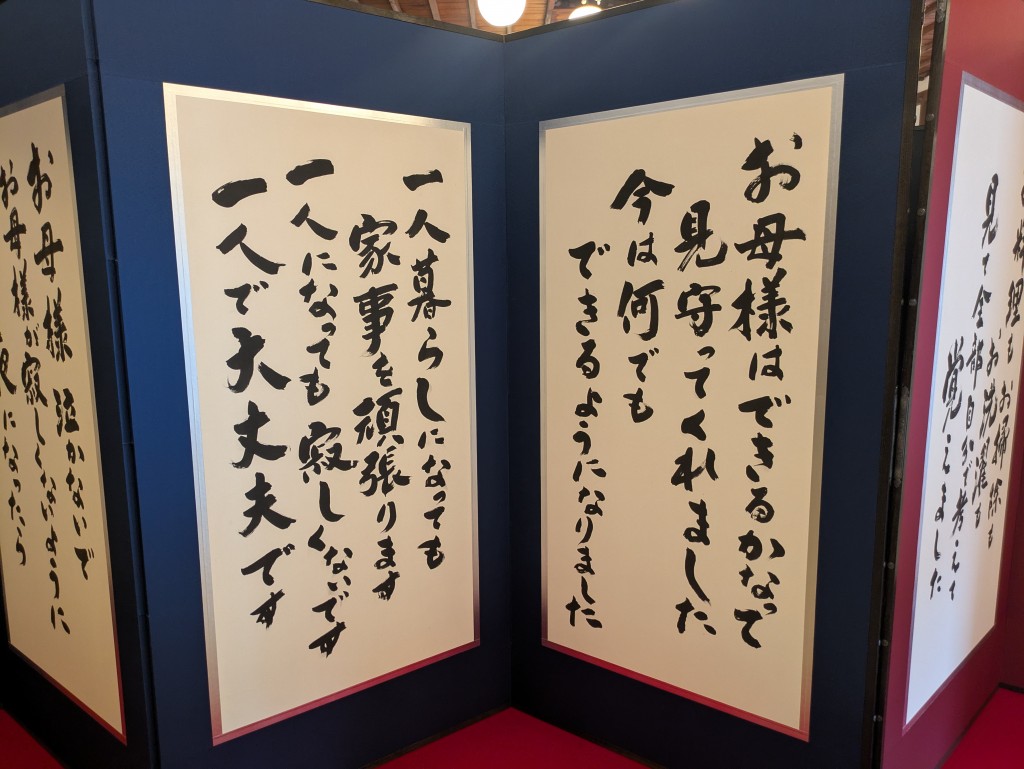 料理も お掃除も
お洗濯も
見て全部自分で考えて
覚えました
お母様はできるかなって
見守ってくれました
今は何でも
できるようになりました
一人暮らしになっても
家事を頑張ります
一人になっても 寂しくないです
一人で大丈夫です
お母様 泣かないで
お母様が寂しくないように
になったら